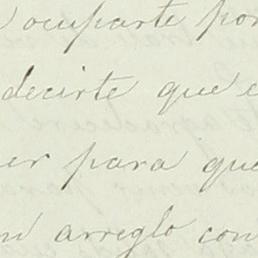 ocuparte por
decirte que e
er para que
n arreglo con